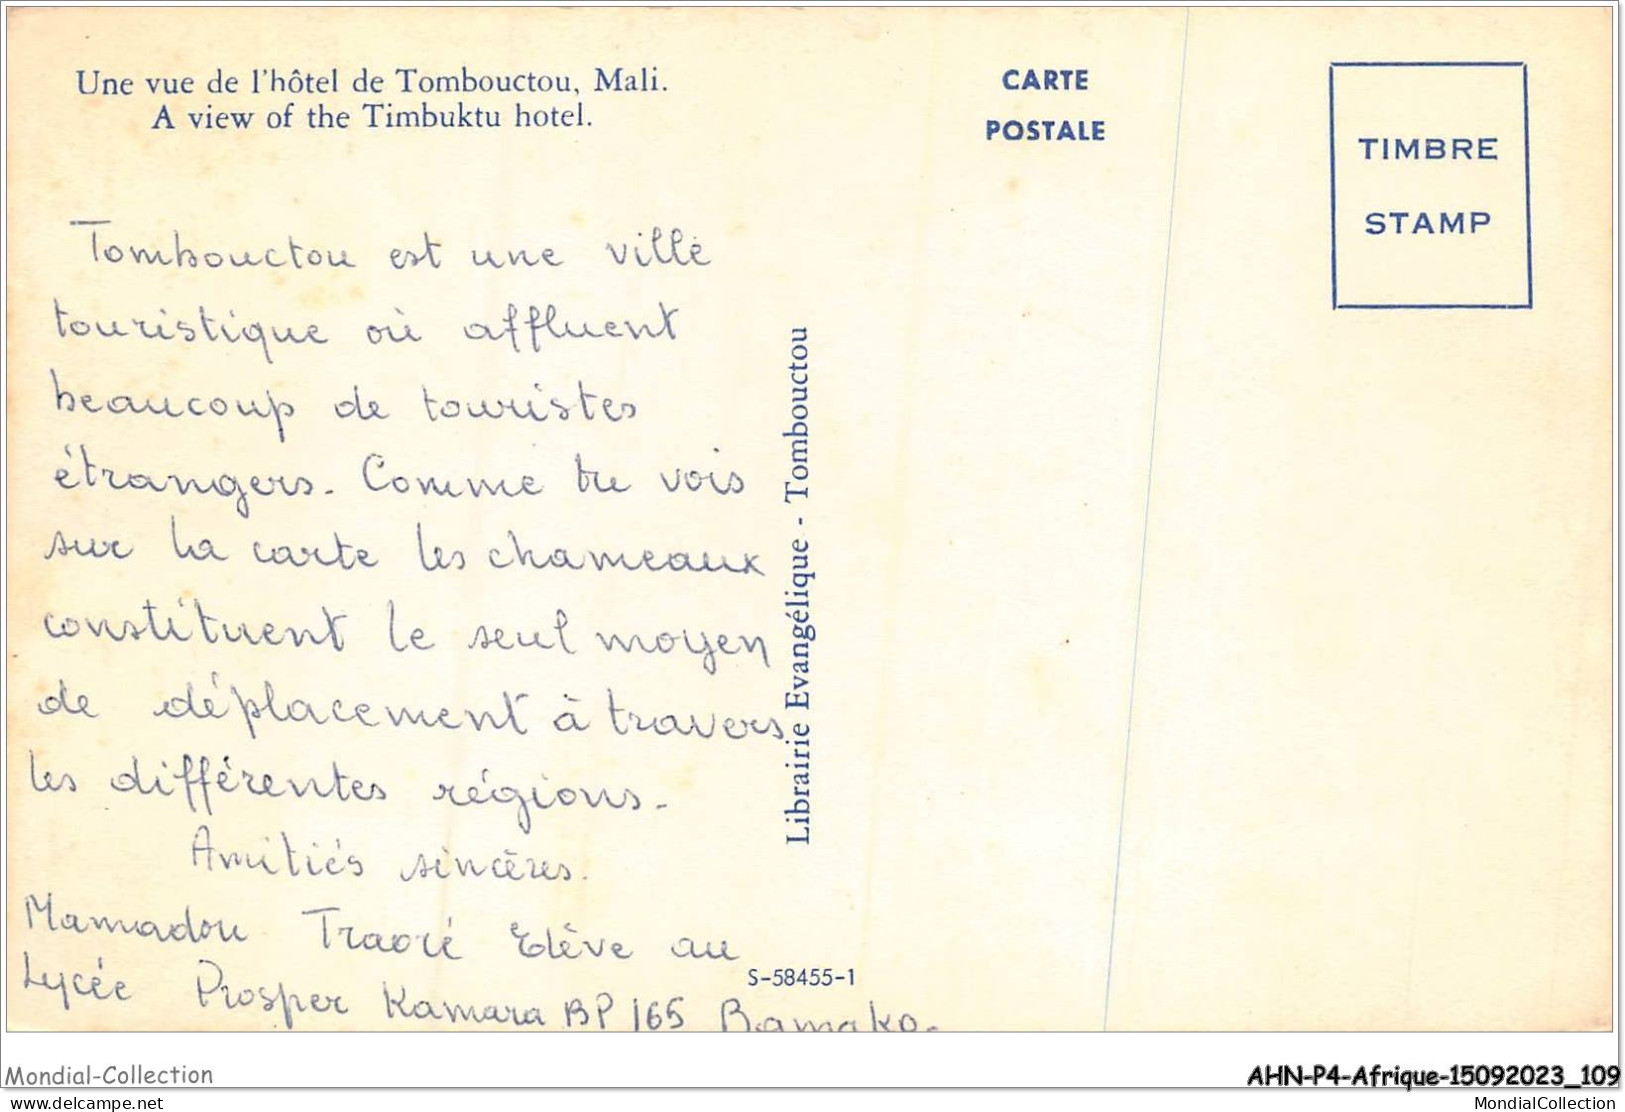 Une vue de l'hôtel de Tombouctou, Mali.
A view of the Timbuktu hotel.
CARTE
POSTALE
TIMBRE
STAMP
Tombouctou est une ville
touristique où affluent
beaucoup de touristes
étrangers. Comme tu vois
sur la carte les chameaux
constituent le seul moyen
de déplacement à travers
les différentes régions.
Amitiés sincères.
Mamadou Traoré Elève au
Lycée Prosper Kamara BP 165 Bamako.
Librairie Evangélique - Tombouctou
S-58455-1
Mondial-Collection
AHN-P4-Afrique-15092023_109
delcampe.net
MondialCollection